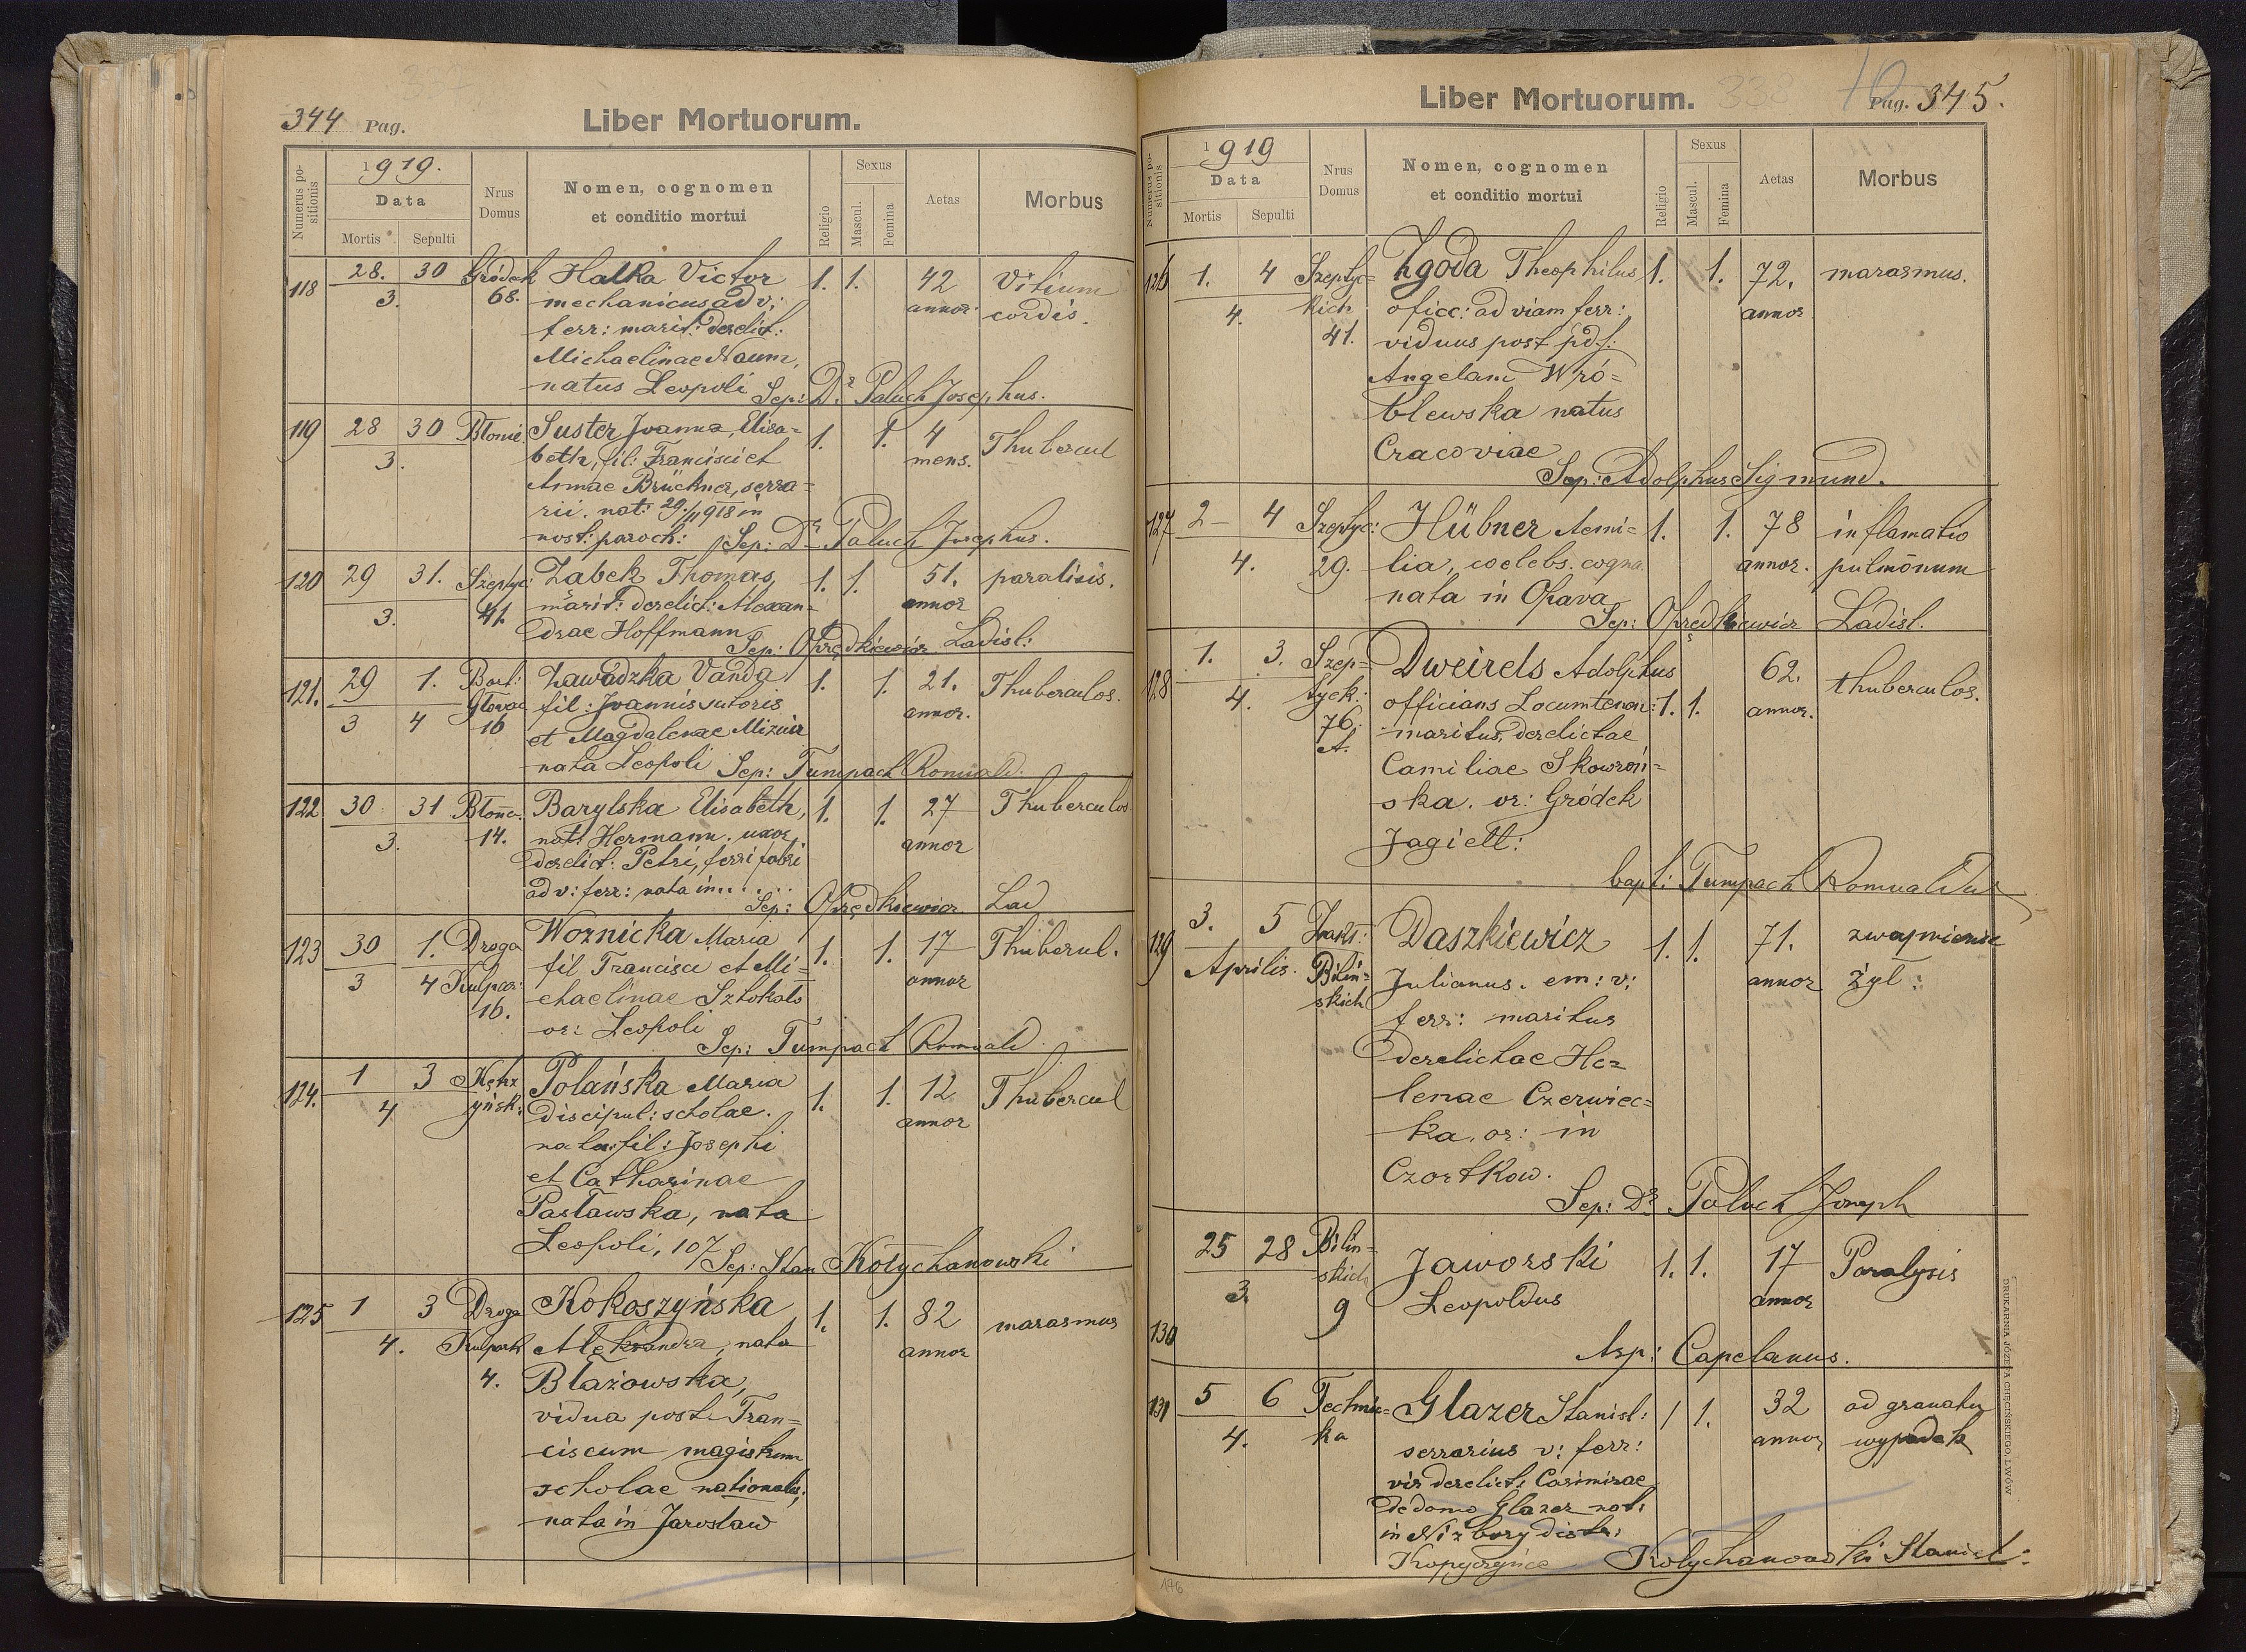 344 Pag.
Liber Mortuorum.
Numerus positionis
1919.
Data
Mortis
Sepulti
Nrus Domus
Nomen, cognomen
et conditio mortui
Religio
Sexus
Mascul.
Femina
Aetas
Morbus
118 28. 30 Gródek Halka Victor 1. 1. 42 Vitium
3. 68. mechanicus ad v: annor. cordis.
ferr: marit: derelict:
Michaelinae Naum,
natus Leopoli Sep: Dr Paluch Josephus.
119 28 30 Błonie Suster Joanna, Elisa= 1. 1. 4 Thubercul
3. beth, fil: Francisci et mens.
Annae Brückner, serra=
rii. nat: 29/11 918 in
nost: paroch: Sep: Dr Paluch Josephus.
120 29 31. Szeptyc: Żabek Thomas, 1. 1. 51. paralisis.
3. 41. marit: derelict: Alexan= annor
drae Hoffmann Sep: Oprzędkiewicz Ladisl:
121. 29 1. Bart: Zawadzka Vanda 1. 1. 21. Thuberculos.
3 4 Głowac fil: Joannis sutoris annor.
16 et Magdalenae Mizuir
nata Leopoli Sep: Tumpach Romuald.
122 30 31 Błonie. Barylska Elisabeth, 1. 1. 27 Thuberculos
3. 14. nat: Hermann. uxor annor
derelict: Petri, ferri fabri
ad v: ferr: nata in.....
Sep: Oprzędkiewicz Lad
123 30 1. Droga Woznicka Maria 1. 1. 17 Thubercul.
3 4 Kulpar: fil Francisci et Mi= annor
16. chaelinae Sztokało
or: Leopoli
Sep: Tumpach Romuald.
124. 1 3 Kętrz Polańska Maria 1. 1. 12 Thubercul
4 yńsk: discipul: scholae. annor
nata: fil: Josephi
et Catharinae
Pasławska, nata
Leopoli, 107 Sep: Stan Kotychanowski
125 1 3 Droga Kokoszyńska 1. 1. 82 marasmus
4. Kulpark Aleksandra, nata annor
4. Błażowska,
vidua post Fran=
ciscum magistrum
scholae nationalis;
nata in Jarosław
Liber Mortuorum.
338
10
Pag. 345.
Numerus positionis
1919
Data
Mortis
Sepulti
Nrus Domus
Nomen, cognomen
et conditio mortui
Religio
Sexus
Mascul.
Femina
Aetas
Morbus
126 1. 4 Szeptyc= Zgoda Theophilus 1. 1. 72. marasmus.
4. kich officc: ad viam ferr: annor
41. viduus post pdf:
Angelam Wró=
blewska natus
Cracoviae
Sep: Adolphus Sigmund.
127 2 4 Szeptyc: Hübner Aemi= 1. 1. 78 inflamatio
4. 29. lia, coelebs. cogna. annor. pulmōnum
nata in Opava
Sep: Oprzędkiewicz Ladisl.
128 1. 3. Szep= Dweirels Adolphus 62. thuberculos.
4. tyck: officians Locumtenen: 1. 1. annor.
76. maritus, derelictae
A. Camiliae Skowroń=
ska. or: Gródek
Jagiell:
bapt: Tumpach Romualdus
129 3. 5 Trakt: Daszkiewicz 1. 1. 71. zwapnienie
Aprilis. Biliń= Julianus. em: v: annor żył:
skich ferr: maritus
derelictae He=
lenae Czerwiec=
ka. or: in
Czortkow.
Sep: Dr Paluch Joseph
130 25 28 Bilin= Jaworski 1. 1. 17 Paralysis
3. skich Leopoldus annor
9
Asp: Capelanus.
131 5 6 Techni= Glazer Stanisl: 1 1. 32 od granatu
4. ka serrarius v: ferr: annor wypadek
vir derelict: Casimirae
de domo Glazer nat:
in Niżbory distr:
Kopyczyńce Kotychanowski Stanisl:
146
DRUKARNIA JÓZEFA CHĘCIŃSKIEGO, LWÓW